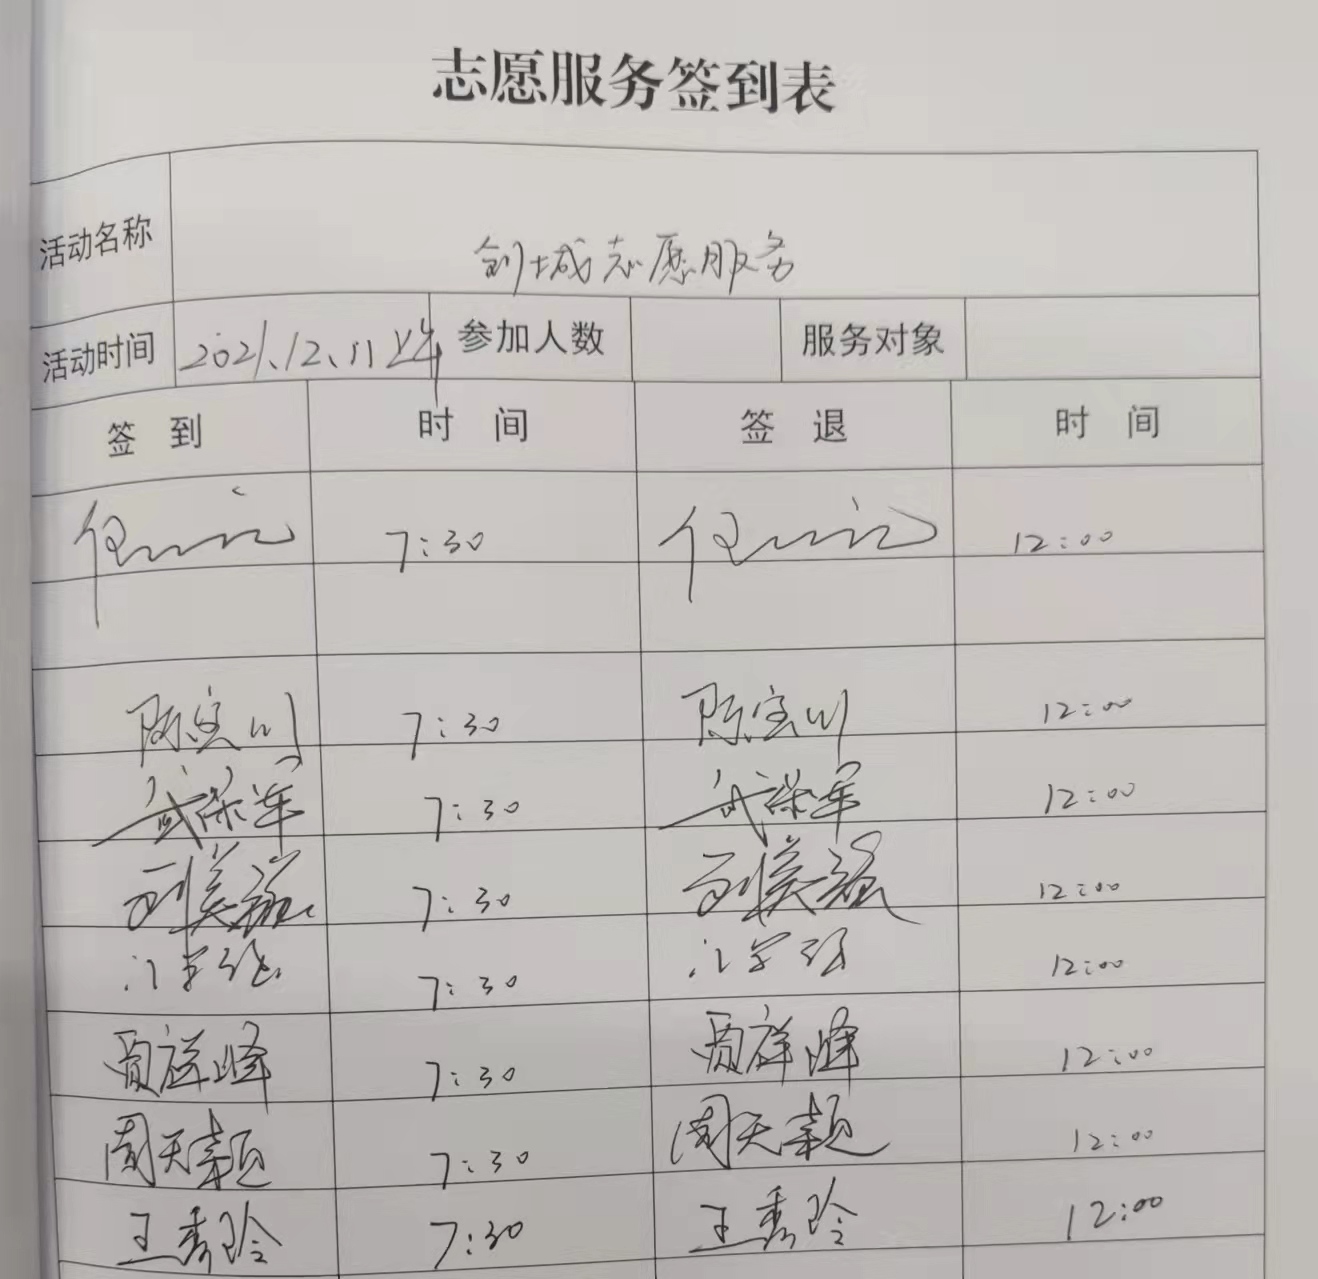 志愿服务签到表
活动名称 创城志愿服务
活动时间 2021.12.11 上午 参加人数 服务对象
签到 时间 签退 时间
7:30 12:00
陈宝川 7:30 陈宝川 12:00
武荣军 7:30 武荣军 12:00
刘美 7:30 刘美 12:00
7:30 12:00
贾祥峰 7:30 贾祥峰 12:00
周天颖 7:30 周天颖 12:00
王秀玲 7:30 王秀玲 12:00